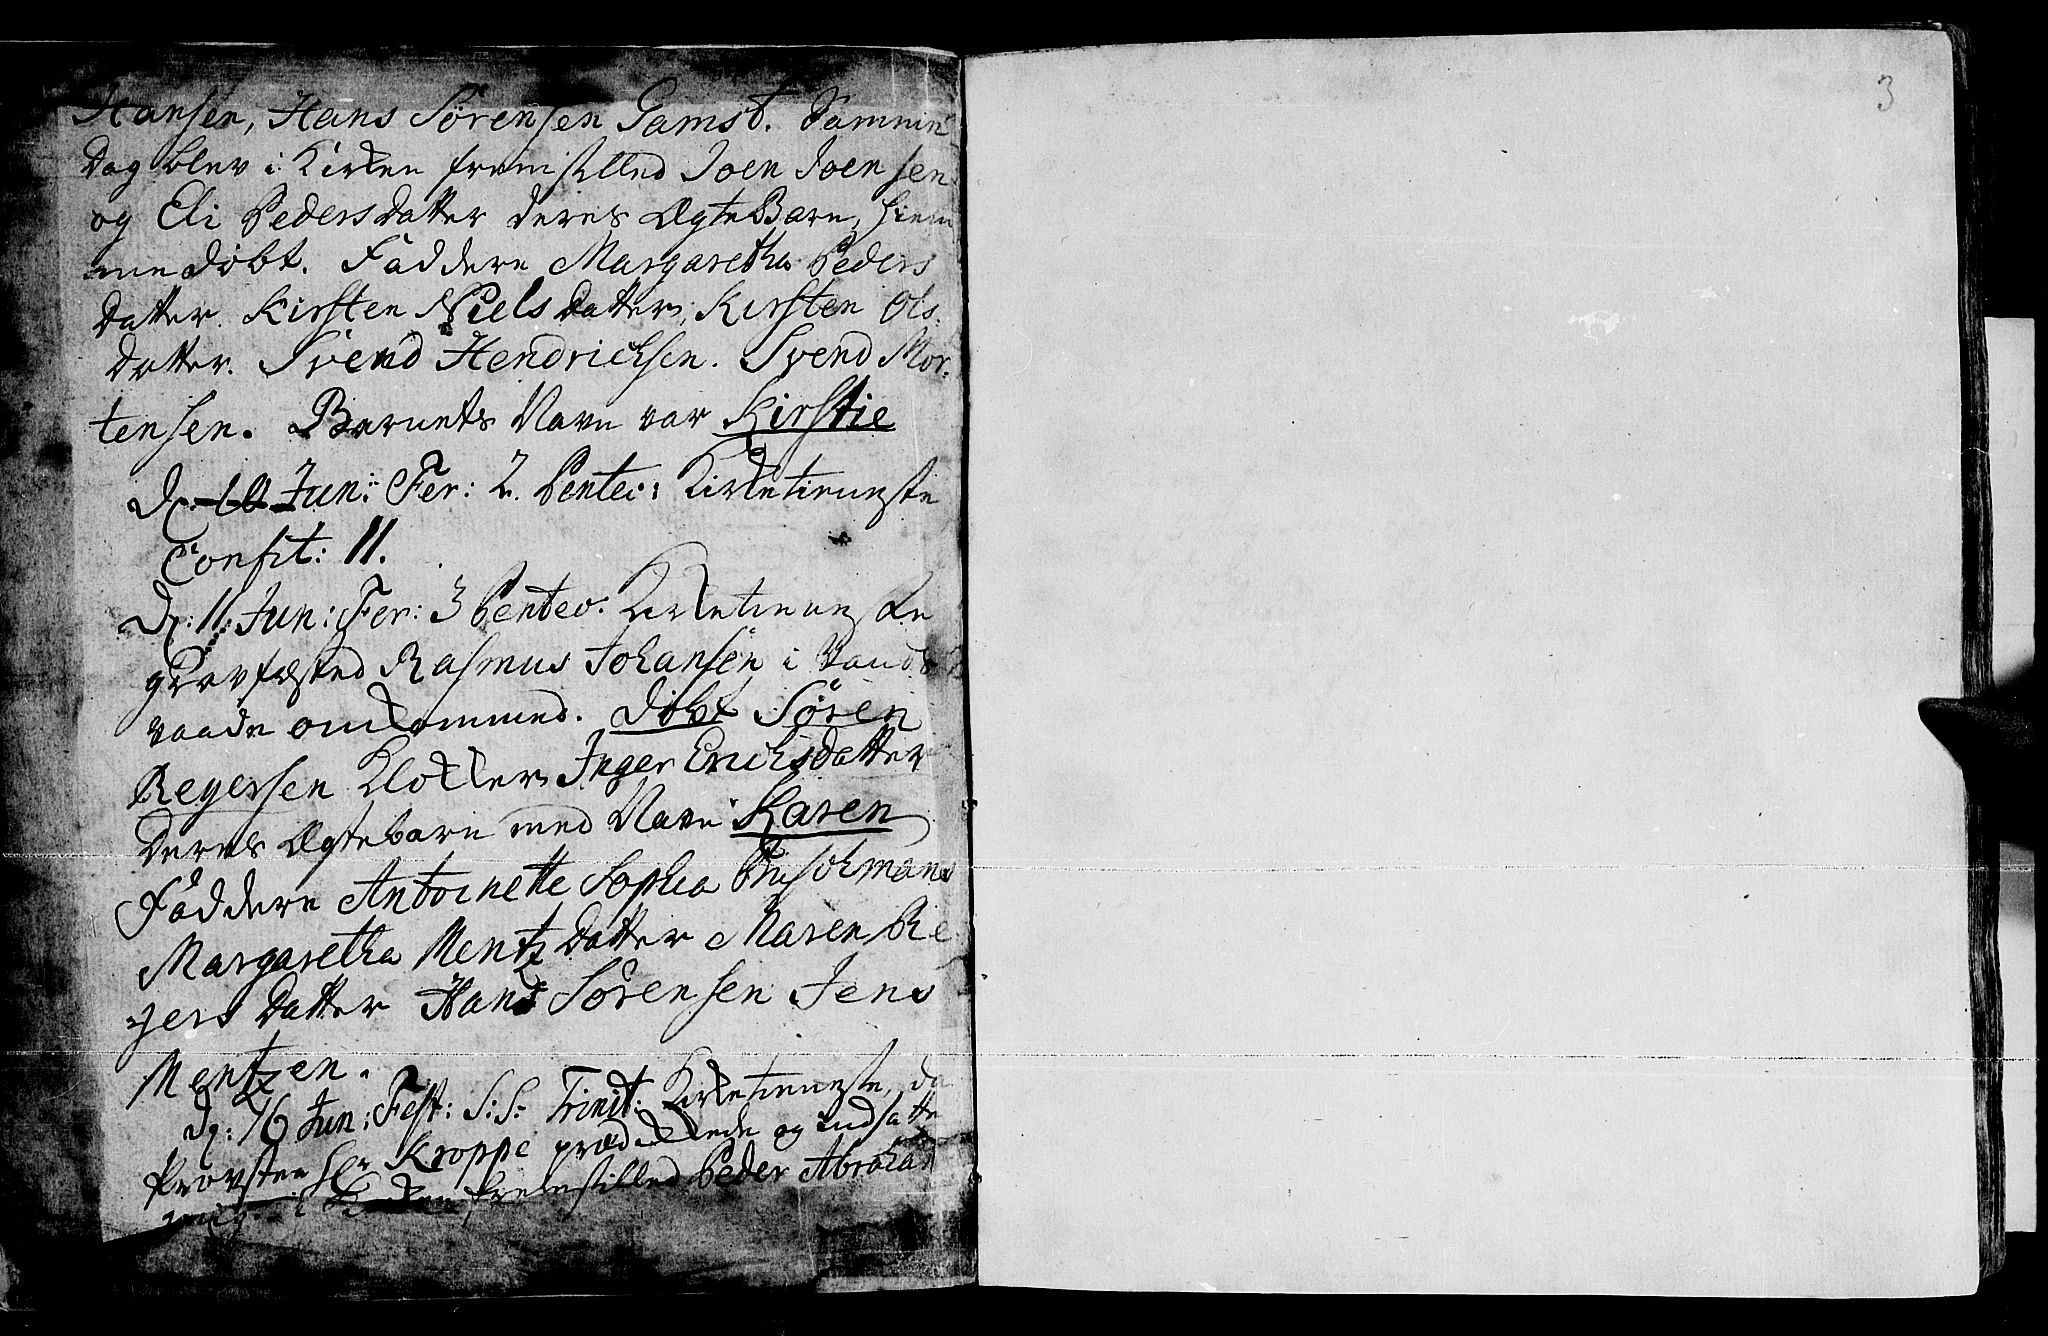 Hansen, Hans Sörensen Gamst. Samme
Dag blev i Kirken fremstilled Joen Joensen
og Eli Pedersdatter deres ÆgteBarn, hiem
me döbt. Faddere Margaretha Peders
datter. Kirsten Nielsdatter, Kirsten Ols
datter. Svend Hendrichsen. Svend Mor
tensen. Barnets Navn var Kirstie
D. 10 Jun: Fer: 2. Pentec: Kirketieneste
Confit: 11.
D: 11 Jun: Fer: 3 Pentec. Kirketieneste
gravfæsted Rasmus Johansen i Vands
vaade omkommed. Döbt Sören
Regersen Klokker Inger Erichsdatter
deres Ægtebarn med Navn Karen
Faddere Antoinette Sophia
Margaretha Mentzdatter Maren Re
gers datter Hans Sörensen Jens
Mentzen.
D: 16 Jun: Fest: S:S: Trinit: Kirketieneste, da
Provsten Hr Kroppe prædikkede og indsatte
mig. i Kirken fremstilled Peder Abraham
3